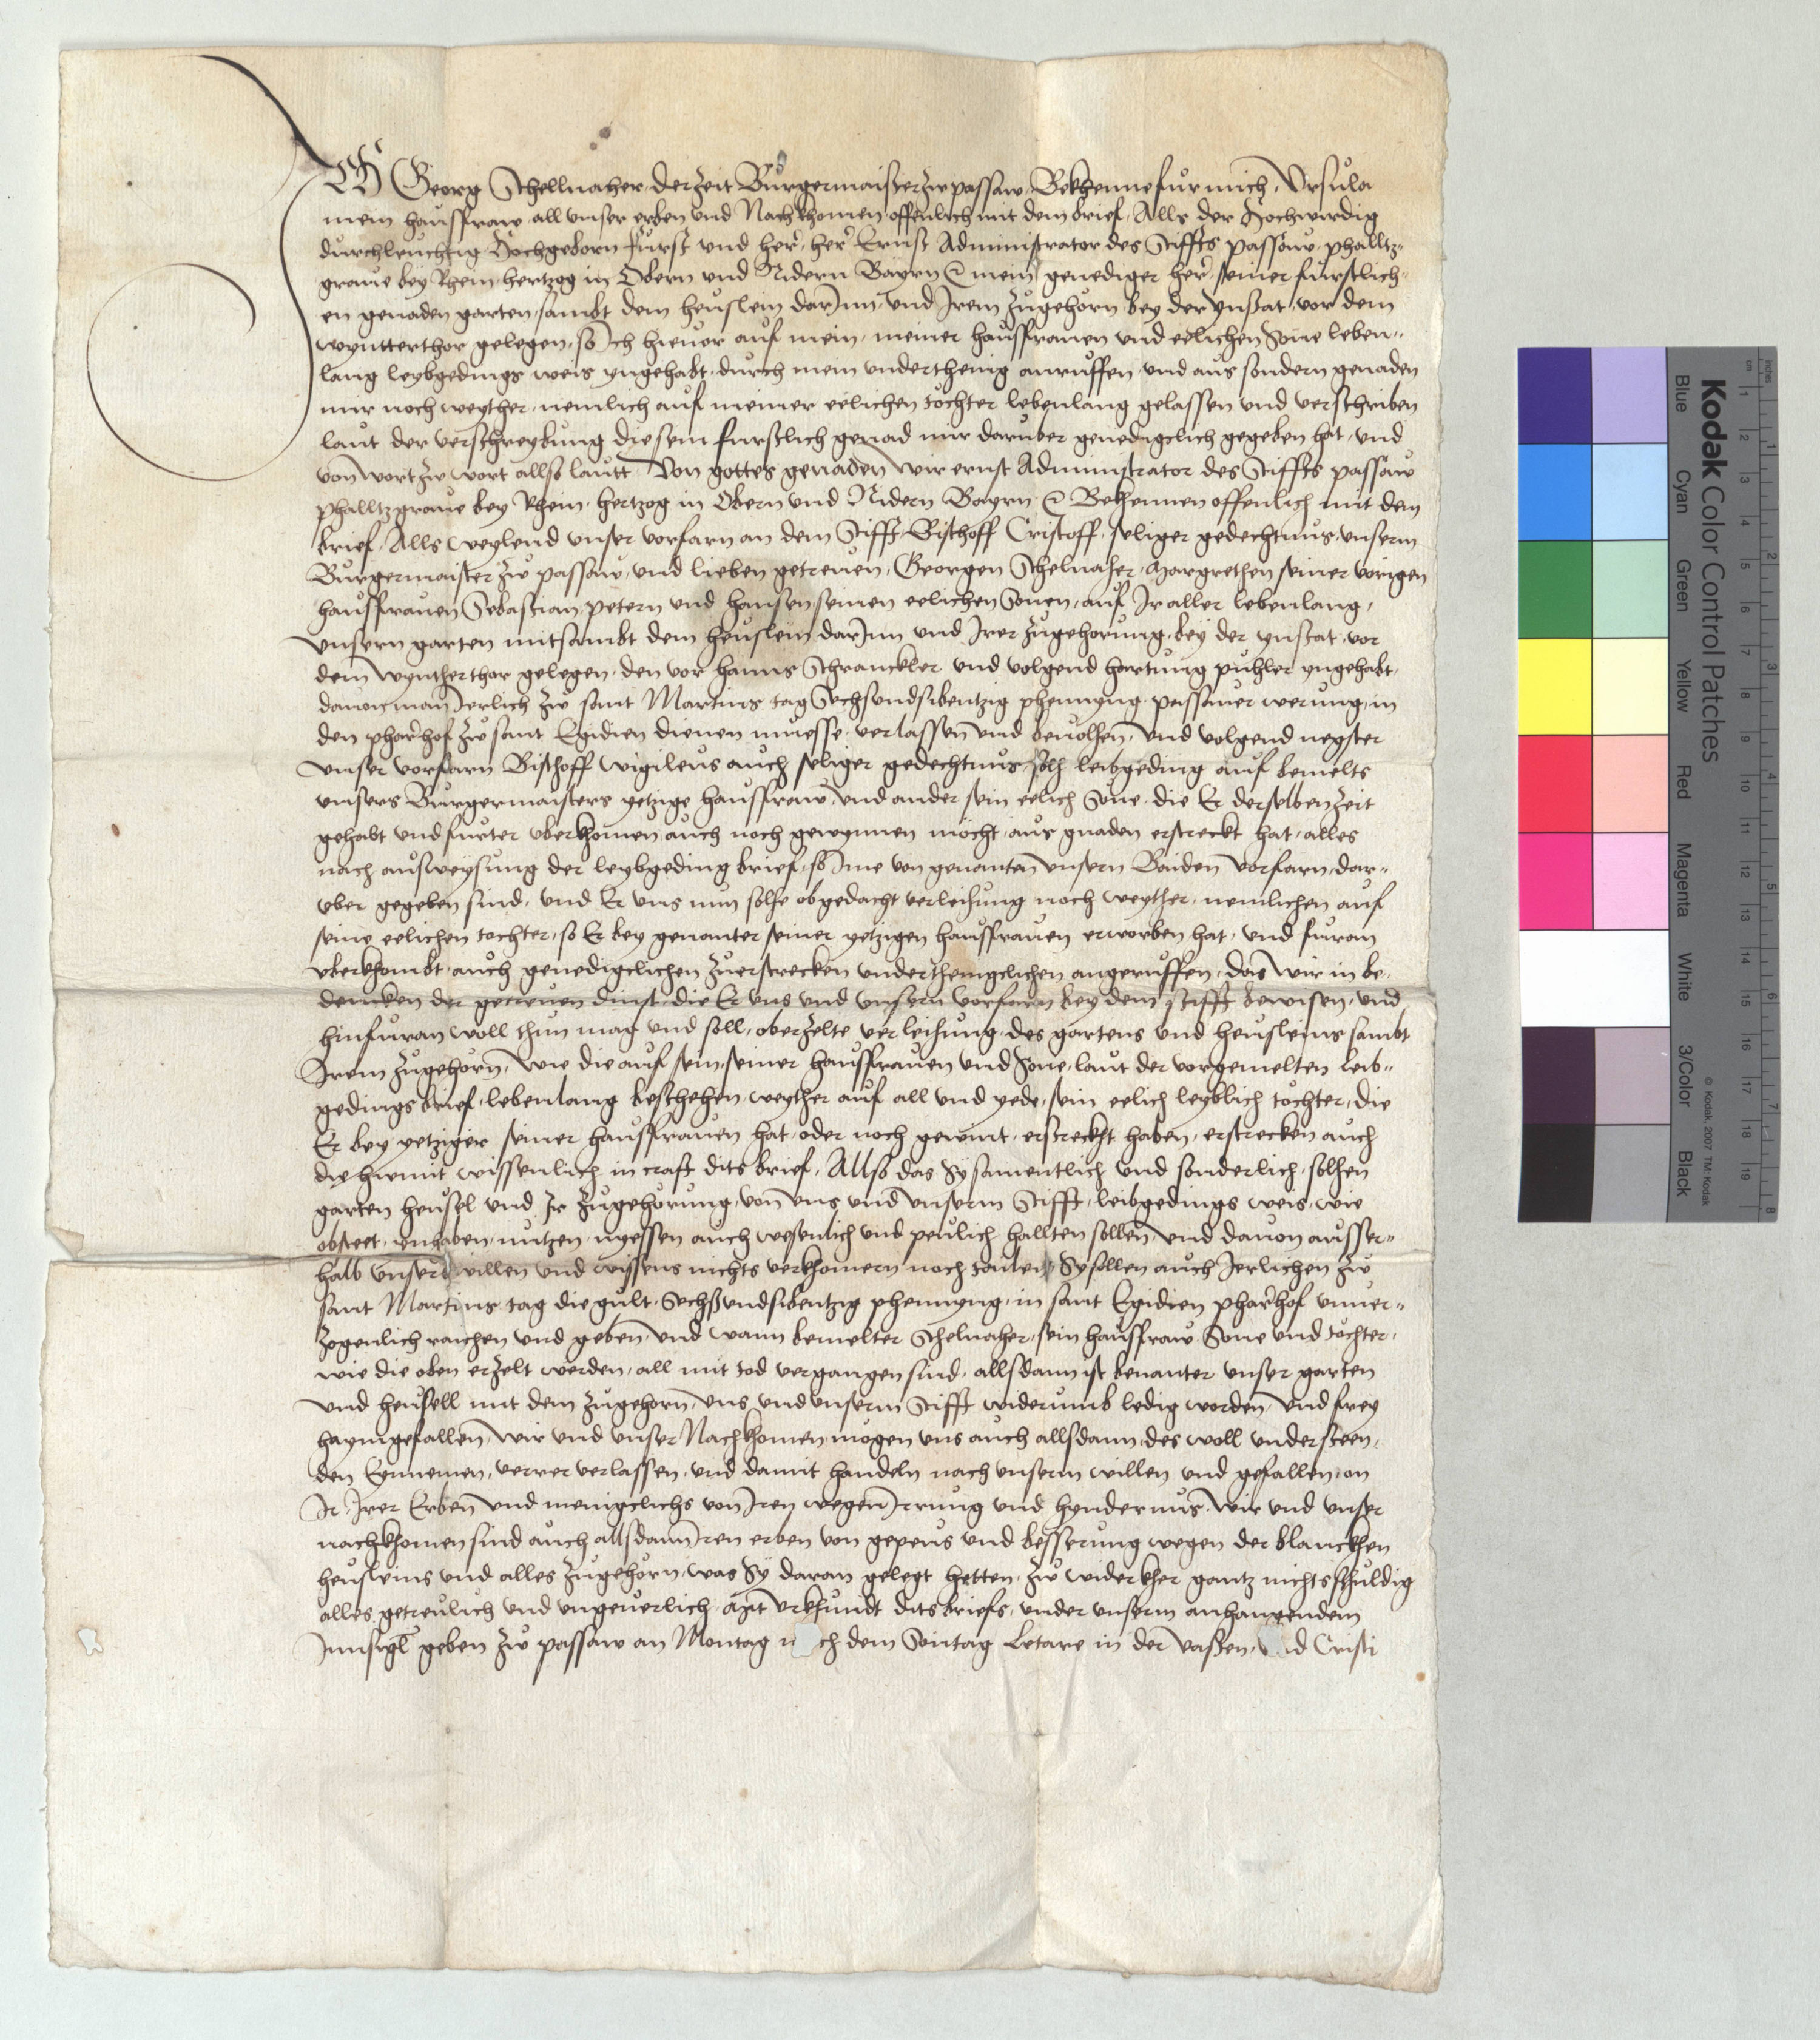 Ich Georg Schellnaher, derzeit Burgermaister zw passaw, Bekhenne fur mich, Ursula
mein hausfraw all unser erben und Nachkhomen offenlich mit dem brief, Alls der Hochwirdig
durchleuchtig Hochgeborn furst und her, her Ernst Administrator des Stiffts passaw, phalltz-
graue bey Rhein, hertzog in Obern und Nidern Bayrn &c mein genediger her, seiner furstlich-
en genaden garten, sambt dem heuslein darJnn, und Jrem zugehorn, bey der ynstat, vor dem
wynttterthor gelegen, so Jch hieuor auf mein, meiner hausfrauen und eelichen Söne leben-
lang leybgedings weis yngehabt, durch mein underthenig anruffen, und aus sondern genaden
mir noch weyther, nemlich auf meiner eelichen töchter lebenlang gelassen und verschriben
laut der verschreybung die sein furstlich genad mir daruber genedigclich gegeben hat, und
von wort zw wort allso lautt, Von gottes genaden wir ernst Administrator des Stiffts passaw
phalltzgraue bey Rhein, hertzog in Obern und Nidern Bayrn &c Bekhennen offenlich mit dem
brief, Alls weylend unser vorfarn an dem Stifft, Bischoff Cristoff, seliger gedechtnus, unserm
Burgermaister zw passaw, und lieben getreuen, Georgen Schelnaher, Margrethen seiner vorigen
hausfrauen Sebastian, petern und hansen, seinen eelichen Sönen, auf Jr aller lebenlang,
unsern garten mitsambt dem heuslein darJnn und Jrer zugehorung, bey der ynstat, vor
dem wyntherthor gelegen, den vor hanns Schranckler und volgend hartung puhler yngehabt,
dauon man Jerlich zw sant Martins tag Sechsundsibentzig phennyng, passauer werung, in
den pharrhof zw sant Egidien dienen muesse, verlassen und beuolhen, und volgend negster
unser vorfarn Bischoff wigileus auch seliger gedechtnus, solh leibgeding auf bemelts
unsers Burgermaisters yetzige hausfraw, und ander sein eelich Söne, die Er derselben zeit
gehabt und furter uberkhomen auch noch gewynnen möcht, aus gnaden erstreckt hat, alles
nach ausweysung der leybgeding brief, so Jme von genanten unsern Baiden vorfarn, dar-
uber gegeben sind, und Er uns nun solhe obgedacht verleihung noch weyther, nemlichen auf
seine eelichen tochter, so Er bey genanter seiner yetzigen hausfrauen erworben hat, und furan
uberkhombt, auch genedigclichen zuerstrecken underthenigclichen angeruffen, das wir in be-
dencken der getreuen dinst, die Er uns und unsern vorfarn bey dem stifft bewisen, und
hinfuran woll thun mag und soll, oberzelte verleihung, des gartens und heusleins sambt
Jrem zugehorn, wie die auf sein, seiner hausfrauen und Söne, laut der vorgemelten leib-
gedings brief, lebenlang beschehen, weyther auf all und yede, sein eelich leyblich töchter, die
Er bey yetziger seiner hausfrauen hat, oder noch gewint, erstreckht haben, erstrecken auch
die hiemit wissenlich in craft dits brief, Allso das Sy samentlich und sonderlich, solhen
garten heusel und Jr zugehorung, von uns und unserm Stifft, leibgedings weis, wie
obsteet, ynhaben, nutzen, nyessen auch wesenlich und peulich hallten sollen, und dauon ausser-
halb unsers willen und wissens nichts verkhomern noch tailen, Sy sollen auch Jerlichen zw
sant Martins tag die gult, Sechsundsibentzig phennyng, in sant Egidien pharrhof unuer-
zogenlich raichen und geben, und wann bemelter Schelnaher, sein hausfraw Söne und töchter,
wie die oben erzelt werden, all mit tod vergangen sind, allsdann ist benanter unser garten
und heusell mit dem zugehorn, uns und unserm Stifft widerumb ledig worden, und frey
haymgefallen, wir und unser Nachkhomen mögen uns auch allsdann des woll understeen,
den Eynnemen, verrer verlassen, und damit handeln nach unserm willen und gefallen, on
Jr, Jrer Erben und menigclichs von Jren wegen Jrrung und hyndernus, wir und unser
nachkhomen sind auch allsdann Jren erben von gepeus und besserung wegen der blanckhen
heusleins und alles zugehorn, was Sy daran gelegt hetten, zw widerkher gantz nichts schuldig
alles getreulich und ungeuerlich, mit urkhundt dits briefs, under unserm anhangendem
Jnnsigl geben zw passaw an Montag nach dem Sontag Letare in der vasten, und Cristi
Kodak Color Control Patches
Blue Cyan Green Yellow Red Magenta White 3/Color Black
© Kodak, 2007 TM: Kodak
inches 1 2 3 4 5 6 7 8
cm 1 2 3 4 5 6 7 8 9 10 11 12 13 14 15 16 17 18 19